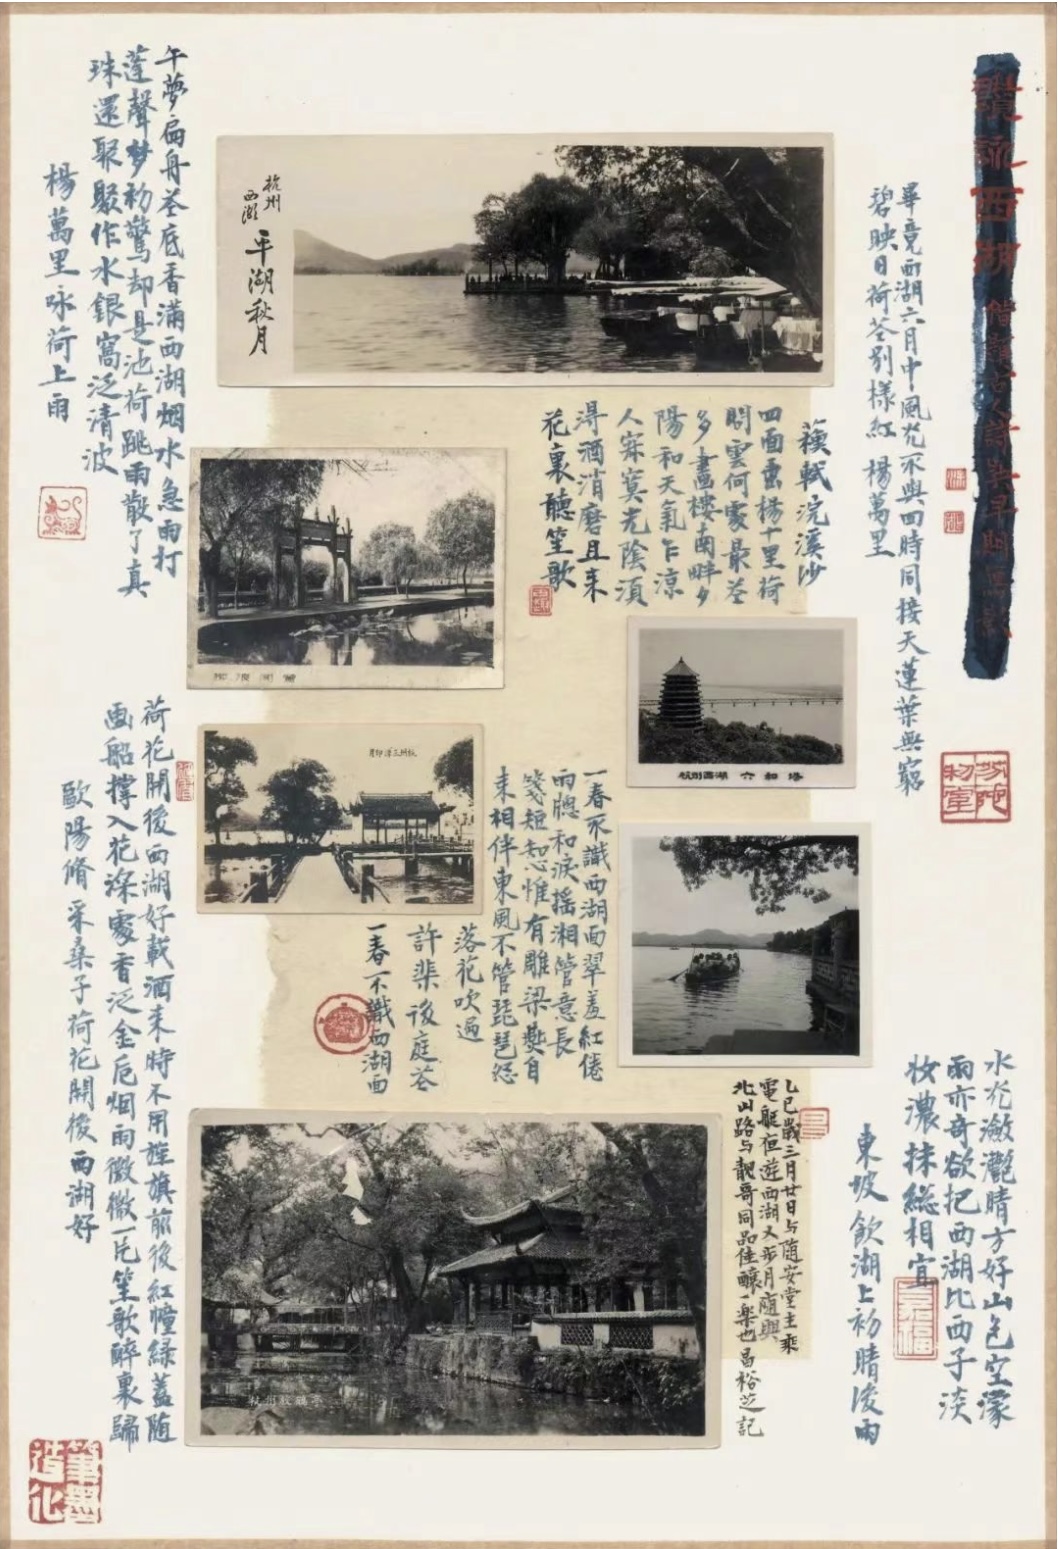 詠西湖
畢竟西湖六月中風光不與四時同接天蓮葉無窮
碧映日荷花別樣紅 楊萬里
杭州
西湖
平湖秋月
蘓軾浣溪沙
四面垂楊十里荷
問雲何處最花
多畫樓南畔夕
陽和天氣乍涼
人寂寞光陰須
得酒消磨且来
花裏聽笙歌
午夢扁舟花底香滿西湖烟水急雨打
蓬聲梦初驚却是池荷跳雨散了真
珠還聚聚作水銀窩泛清波
楊萬里咏荷上雨
杭州西湖 六和塔
杭州三潭印月
一春不識西湖面翠羞紅倦
雨牕和淚搖湘管意長
箋短知心惟有雕梁燕自
来相伴東風不管琵琶怨
落花吹遍
許棐後庭花
一春不識西湖面
水光瀲灩晴方好山色空濛
雨亦奇欲把西湖比西子淡
妝濃抹總相宜
東坡飲湖上初晴後雨
乙巳歲三月廿日与随安堂主乘
電艇夜遊西湖又步月随興
北山路与靓哥同品佳釀一楽也昌裕芝記
荷花開後西湖好載酒来時不用旌旗前後紅幢綠蓋随
畫船撑入花深處香泛金卮烟雨微微一片笙歌醉裏歸
歐陽脩采桑子荷花開後西湖好
筆墨造化